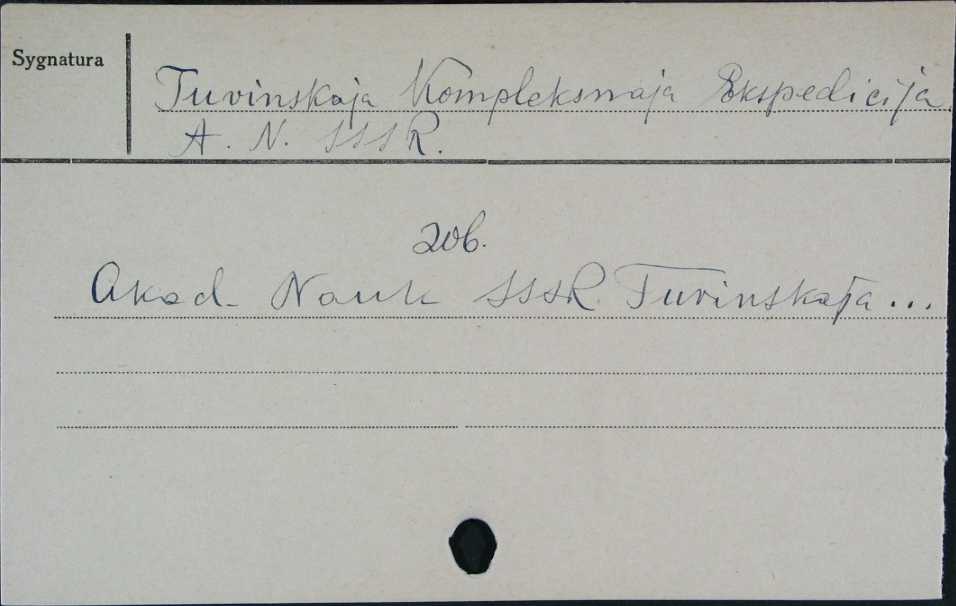 Sygnatura
Tuvinskaja Kompleksnaja Ekspedicija
A. N. SSSR.
zob.
Akad. Nauk SSSR. Tuvinskaja ...